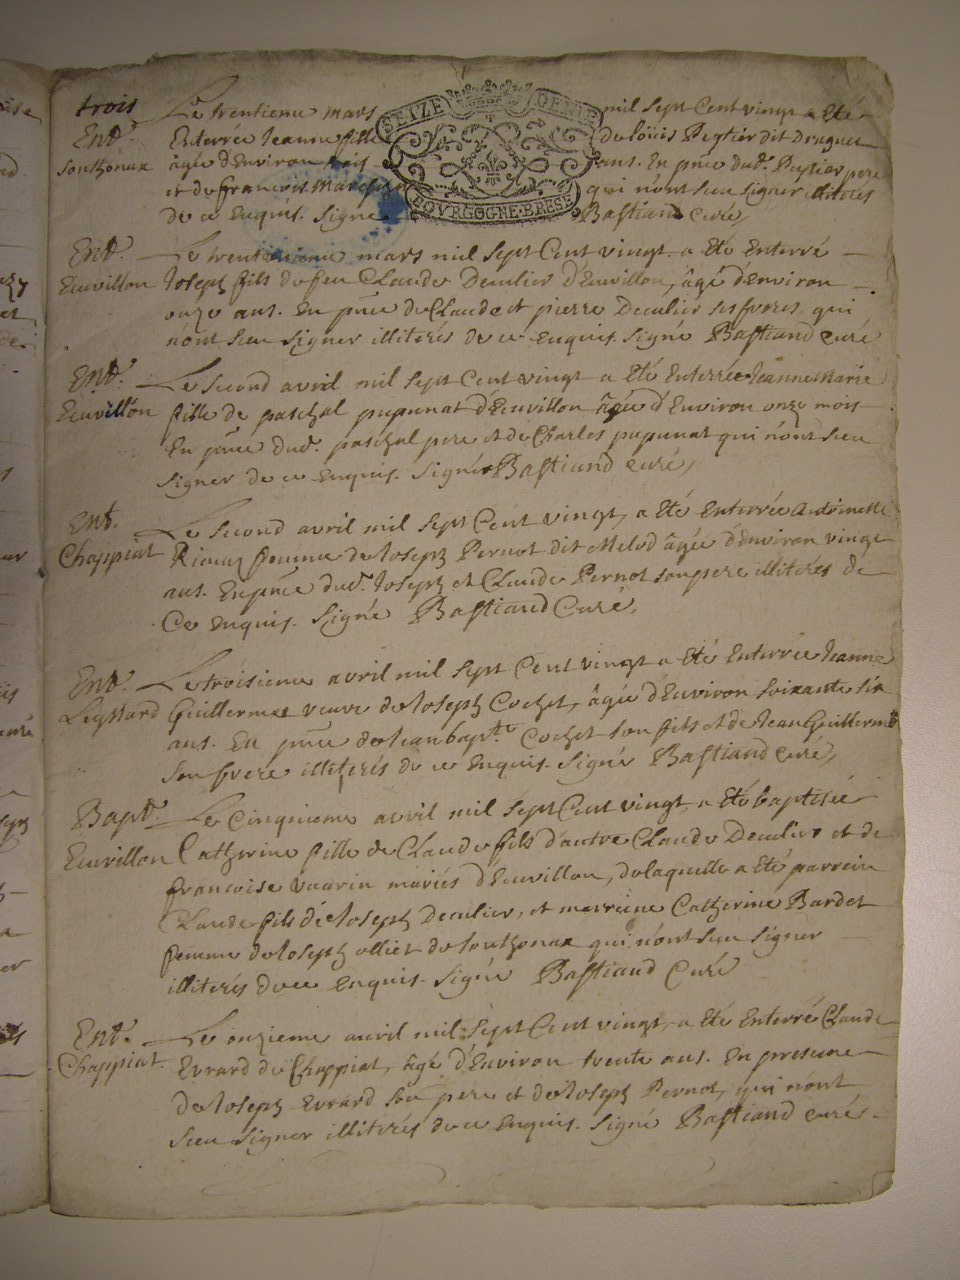 trois
SEIZE DENIE
BOVRGOGNE·BRESE
Entt.
Southonax
Le trentieme mars mil sept Cent vingt a Eté
Enterrée Jeanne fille de loüis Pegtier dit Druguet
âgée d'Environ trois ans. En pnce dudt. Pegtier pere
et de francois Marechan qui n'ont sceu signer illiterés
de ce enquis. Signé Bastiand Curé,
Entt.
Euvillon
Le trentunieme mars mil sept Cent vingt a Eté Enterré
Joseph fils du feu Claude Decalier d'Euvillon, âgé d'Environ
onze ans. En pnce de Claude et pierre Decalier ses freres, qui
n'ont sceu signer illiterés de ce enquis. Signé Bastiand Curé
Entt.
Euvillon
Le second avril mil sept Cent vingt a Eté Enterrée Jeanne Marie
fille de paschal pupunat d'Euvillon âgée d'Environ onze mois
En pnce dudt. paschal pere et de Charles pupunat qui n'ont sceu
signer de ce enquis. Signé Bastiand Curé,
Entt.
Chappiat
Le second avril mil sept Cent vingt, a Eté Enterrée Antoinette
femme de Joseph Pernot dit Melod âgée d'Environ vingt
ans. En pnce dudt. Joseph et Claude Pernot son pere illiterés de
Ce enquis. Signé Bastiand Curé,
Entt.
Legnard
Le troisieme avril mil sept Cent vingt a Eté Enterrée Jeanne
Guillermet veuve de Joseph Cochet, âgée d'Environ soixante six
ans. En pnce de Jean bapte. Cochet son fils et de Jean Guillermet
son frere illiterés de ce enquis. Signé Bastiand Curé,
Bapt.
Euvillon
Le Cinquieme avril mil sept Cent vingt, a Eté baptisée
Catherine fille de Claude fils d'autre Claude Decalier et de
francoise vuarin mariés d'Euvillon, de laquelle a Eté parrein
Claude fils de Joseph Decalier, et marreine Catherine Bardet
femme de Joseph olliet de Southonax qui n'ont sceu signer
illiterés de ce enquis. Signé Bastiand Curé
Entt.
Chappiat
Le onzieme avril mil sept Cent vingt, a Eté Enterré Claude
Evrard de Chappiat, âgé d'Environ trente ans. En presence
de Joseph Evrard son pere et de Joseph Pernot, qui n'ont
sceu signer illiterés de ce enquis. Signé Bastiand Curé